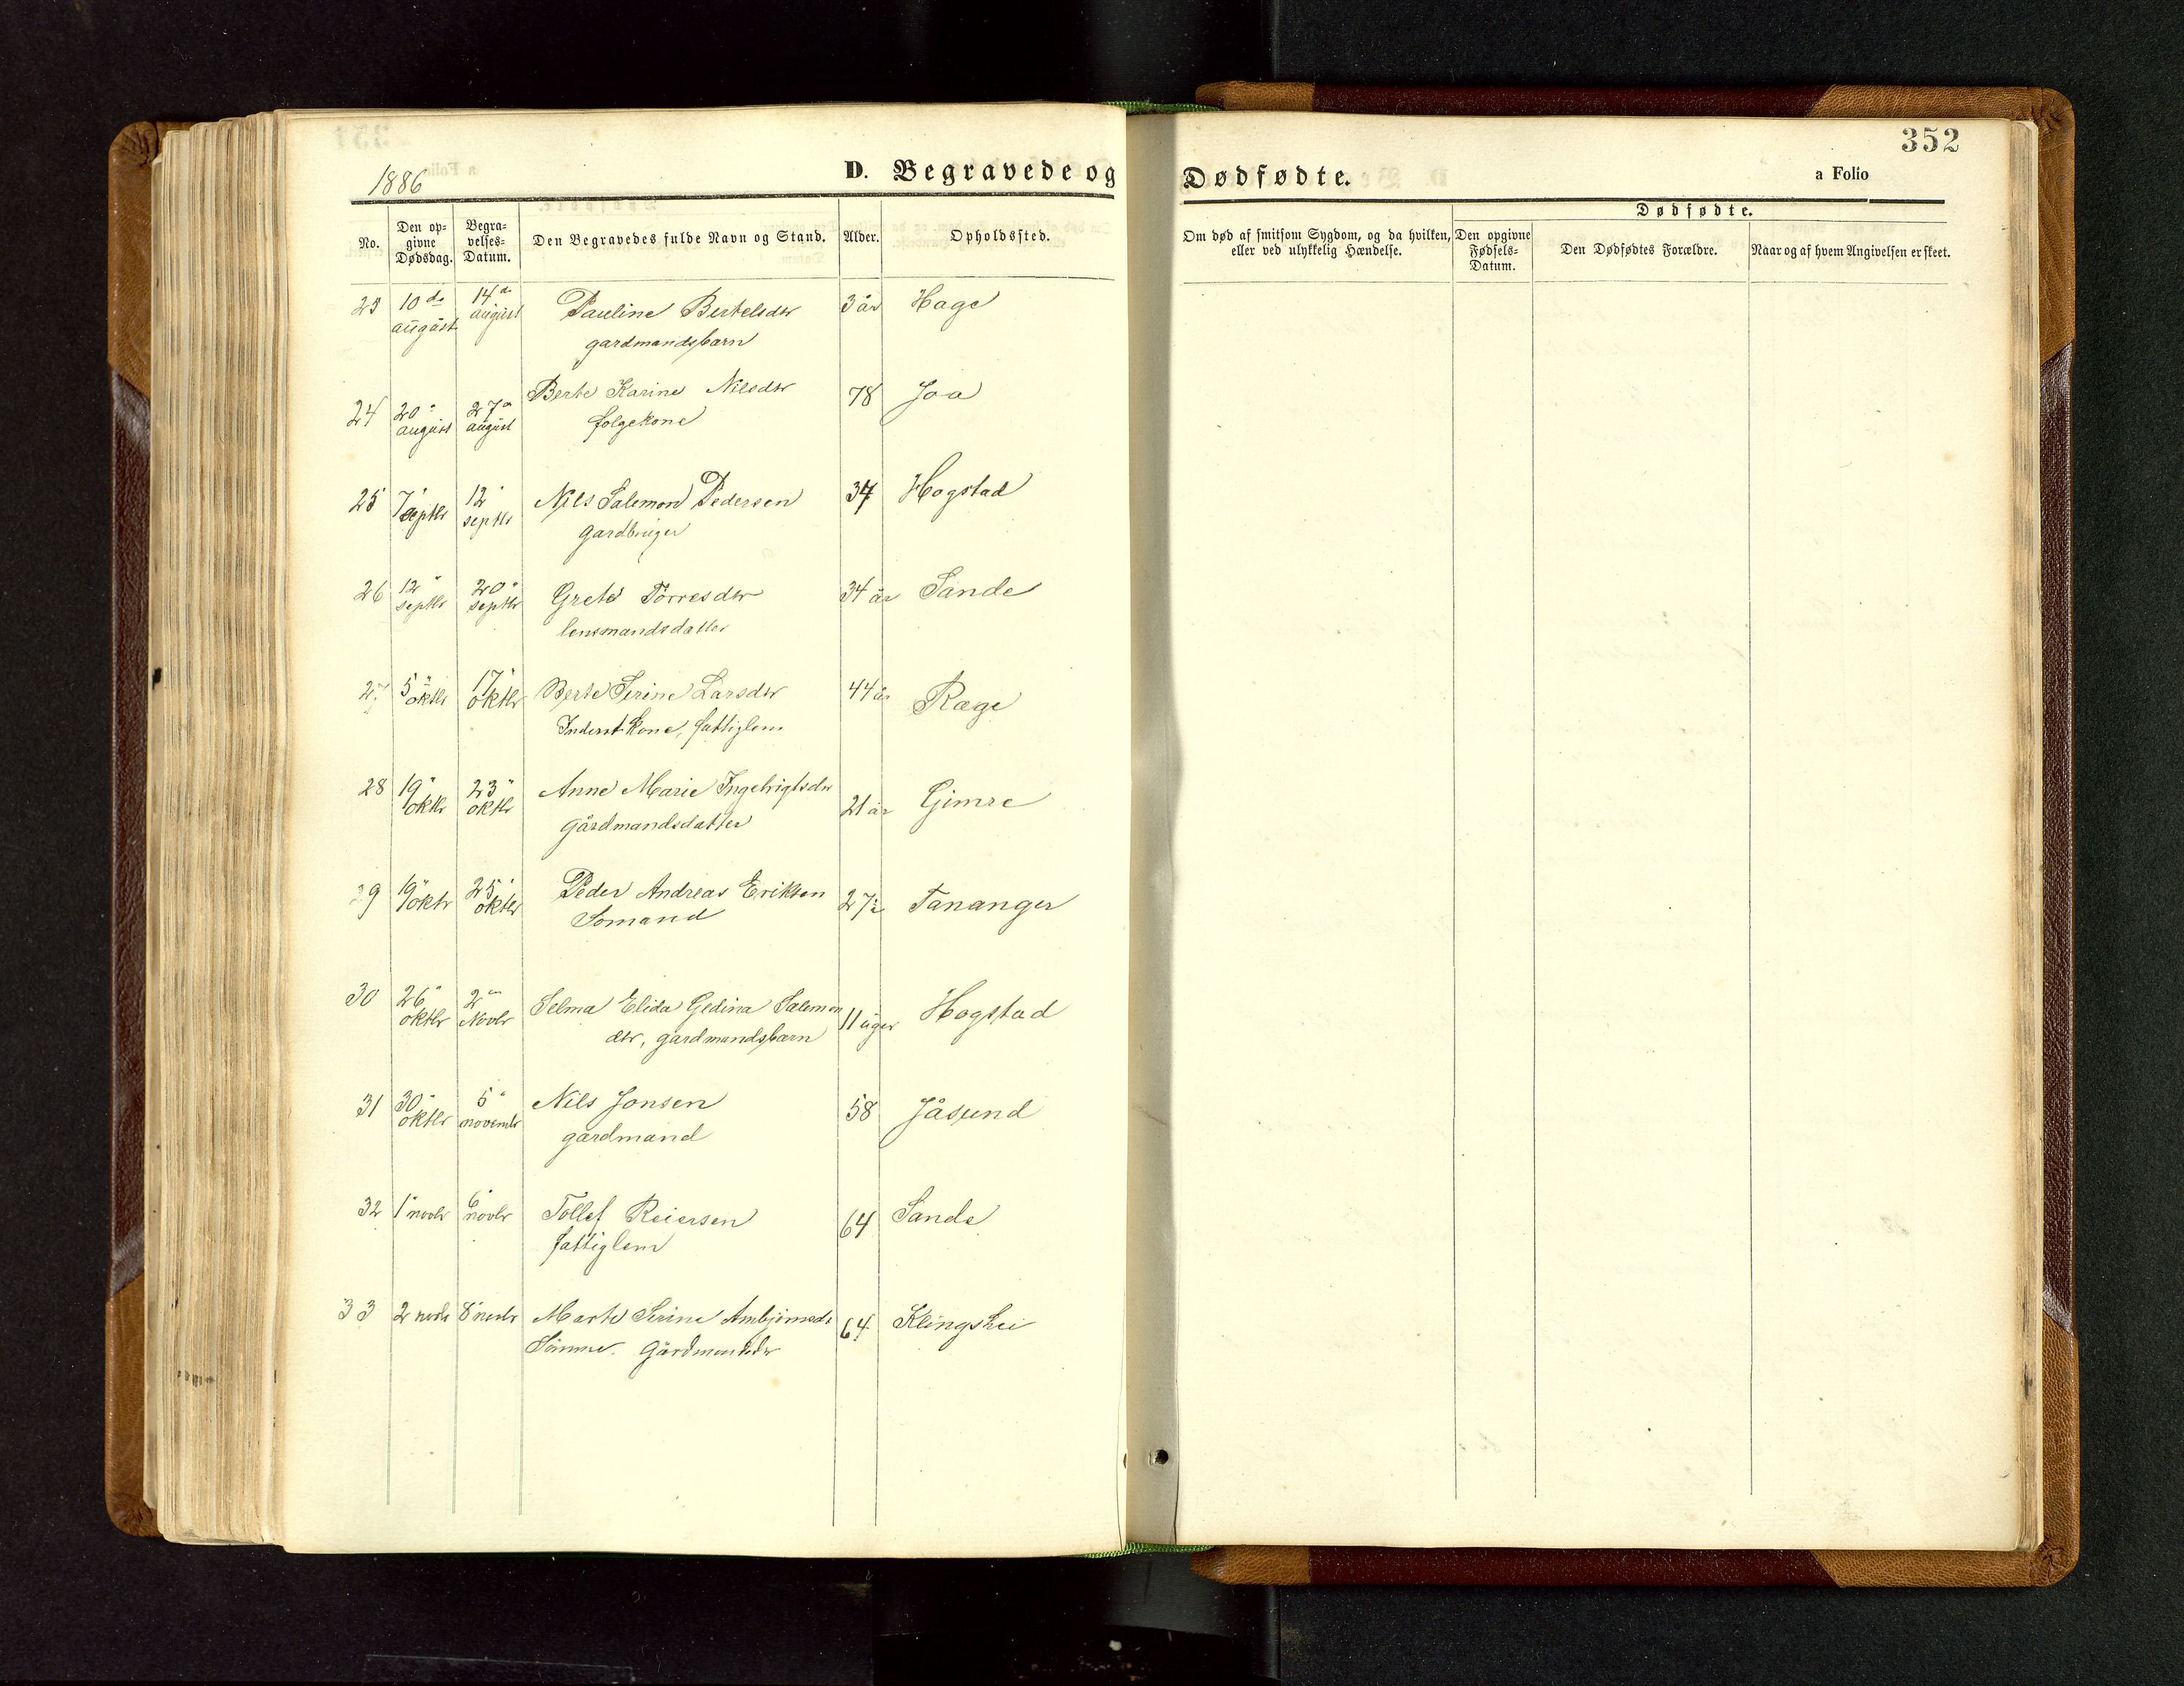 352
1886
D. Begravede og Dødfødte.
a Folio
No.
Den op-
givne
Dødsdag.
Begra-
velses-
Datum.
Den Begravedes fulde Navn og Stand.
Alder.
Opholdssted.
Om død af smitsom Sygdom, og da hvilken,
eller ved ulykkelig Hændelse.
Dødfødte.
Den opgivne
Fødsels-
Datum.
Den Dødfødtes Forældre.
Naar og af hvem Angivelsen er skeet.
23 10de august 14de august Pauline Bertelsdtr 3 år Hage
gardmandsbarn
24 20" august 27" august Berte Karine Nilsdtr 78 Joa
følgekone
25 7" septbr 12" septbr Nils Salemon Pedersen 37 Hogstad
gardbruger
26 12" septbr 20" septbr Grete Tørresdtr 34 år Sande
lensmandsdatter
27 5" oktbr 17" oktbr Berte Serine Larsdtr 44 år Ræge
Inderst Kone, fattiglem
28 19" oktbr 23" oktbr Anne Marie Ingebrigtsdtr 21 år Gimre
gårdmandsdatter
29 19" oktr 25" oktbr Peder Andreas Eriksen 27 Tananger
Sømand
30 26" oktbr 2" Novbr Selma Elida Gedina Salemon 11 uger Hogstad
dtr, gårdmandsbarn
31 30" oktbr 5" novembr Nils Jonsen 58 Jåsund
gardmand
32 1" novbr 6" novbr Tollef Reiersen 64 Sande
fattiglem
33 2 novbr 8" novbr Marte Serine Ambjørnsdr 64 Klingshei
Sømme. Gårdmandsdr